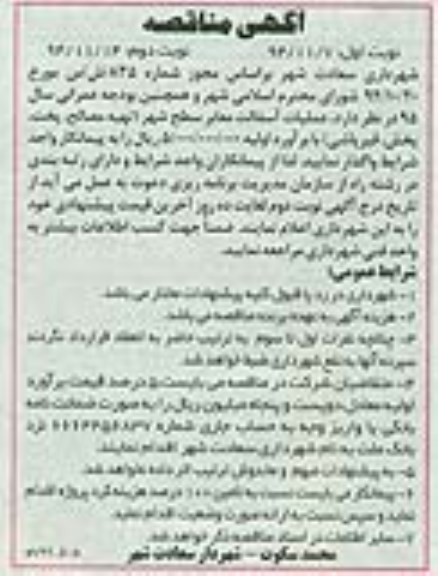 آگهی مناقصه
نوبت اول: ۹۴/۱۱/۷ نوبت دوم: ۹۴/۱۱/۱۴
شهرداری سعادت شهر براساس مجوز شماره ۸۲۵/ش/س مورخ
شورای محترم اسلامی شهر و همچنین بودجه عمرانی سال
۹۵ در نظر دارد، عملیات آسفالت معابر سطح شهر (تهیه مصالح، پخت،
پخش، قیرپاشی) با برآورد اولیه ریال را به پیمانکار واجد
شرایط واگذار نمایند. لذا از پیمانکاران واجد شرایط و دارای رتبه بندی
در رشته راه از سازمان مدیریت برنامه ریزی دعوت به عمل می آید از
تاریخ درج آگهی نوبت دوم لغایت ده روز آخرین قیمت پیشنهادی خود
را به این شهرداری اعلام نمایند. ضمناً جهت کسب اطلاعات بیشتر به
واحد فنی شهرداری مراجعه نمایید.
شرایط عمومی:
۱- شهرداری در رد یا قبول کلیه پیشنهادات مختار می باشد.
۲- هزینه آگهی به عهده برنده مناقصه می باشد.
۳- چنانچه نفرات اول تا سوم به ترتیب حاضر به انعقاد قرارداد نگردند
سپرده آنها به نفع شهرداری ضبط خواهد شد.
۴- متقاضیان شرکت در مناقصه می بایست ۵ درصد قیمت برآورد
اولیه معادل دویست و پنجاه میلیون ریال را به صورت ضمانت نامه
بانکی یا واریز وجه به حساب جاری شماره نزد
بانک ملت به نام شهرداری سعادت شهر اقدام نمایند.
۵- به پیشنهادات مبهم و مخدوش ترتیب اثر داده نخواهد شد.
۶- پیمانکار می بایست نسبت به تامین ۱۰۰ درصد هزینه کرد پروژه اقدام
نماید و سپس نسبت به ارائه صورت وضعیت اقدام نماید.
۷- سایر اطلاعات در اسناد مناقصه ذکر خواهد شد.
محمد سکوت - شهردار سعادت شهر